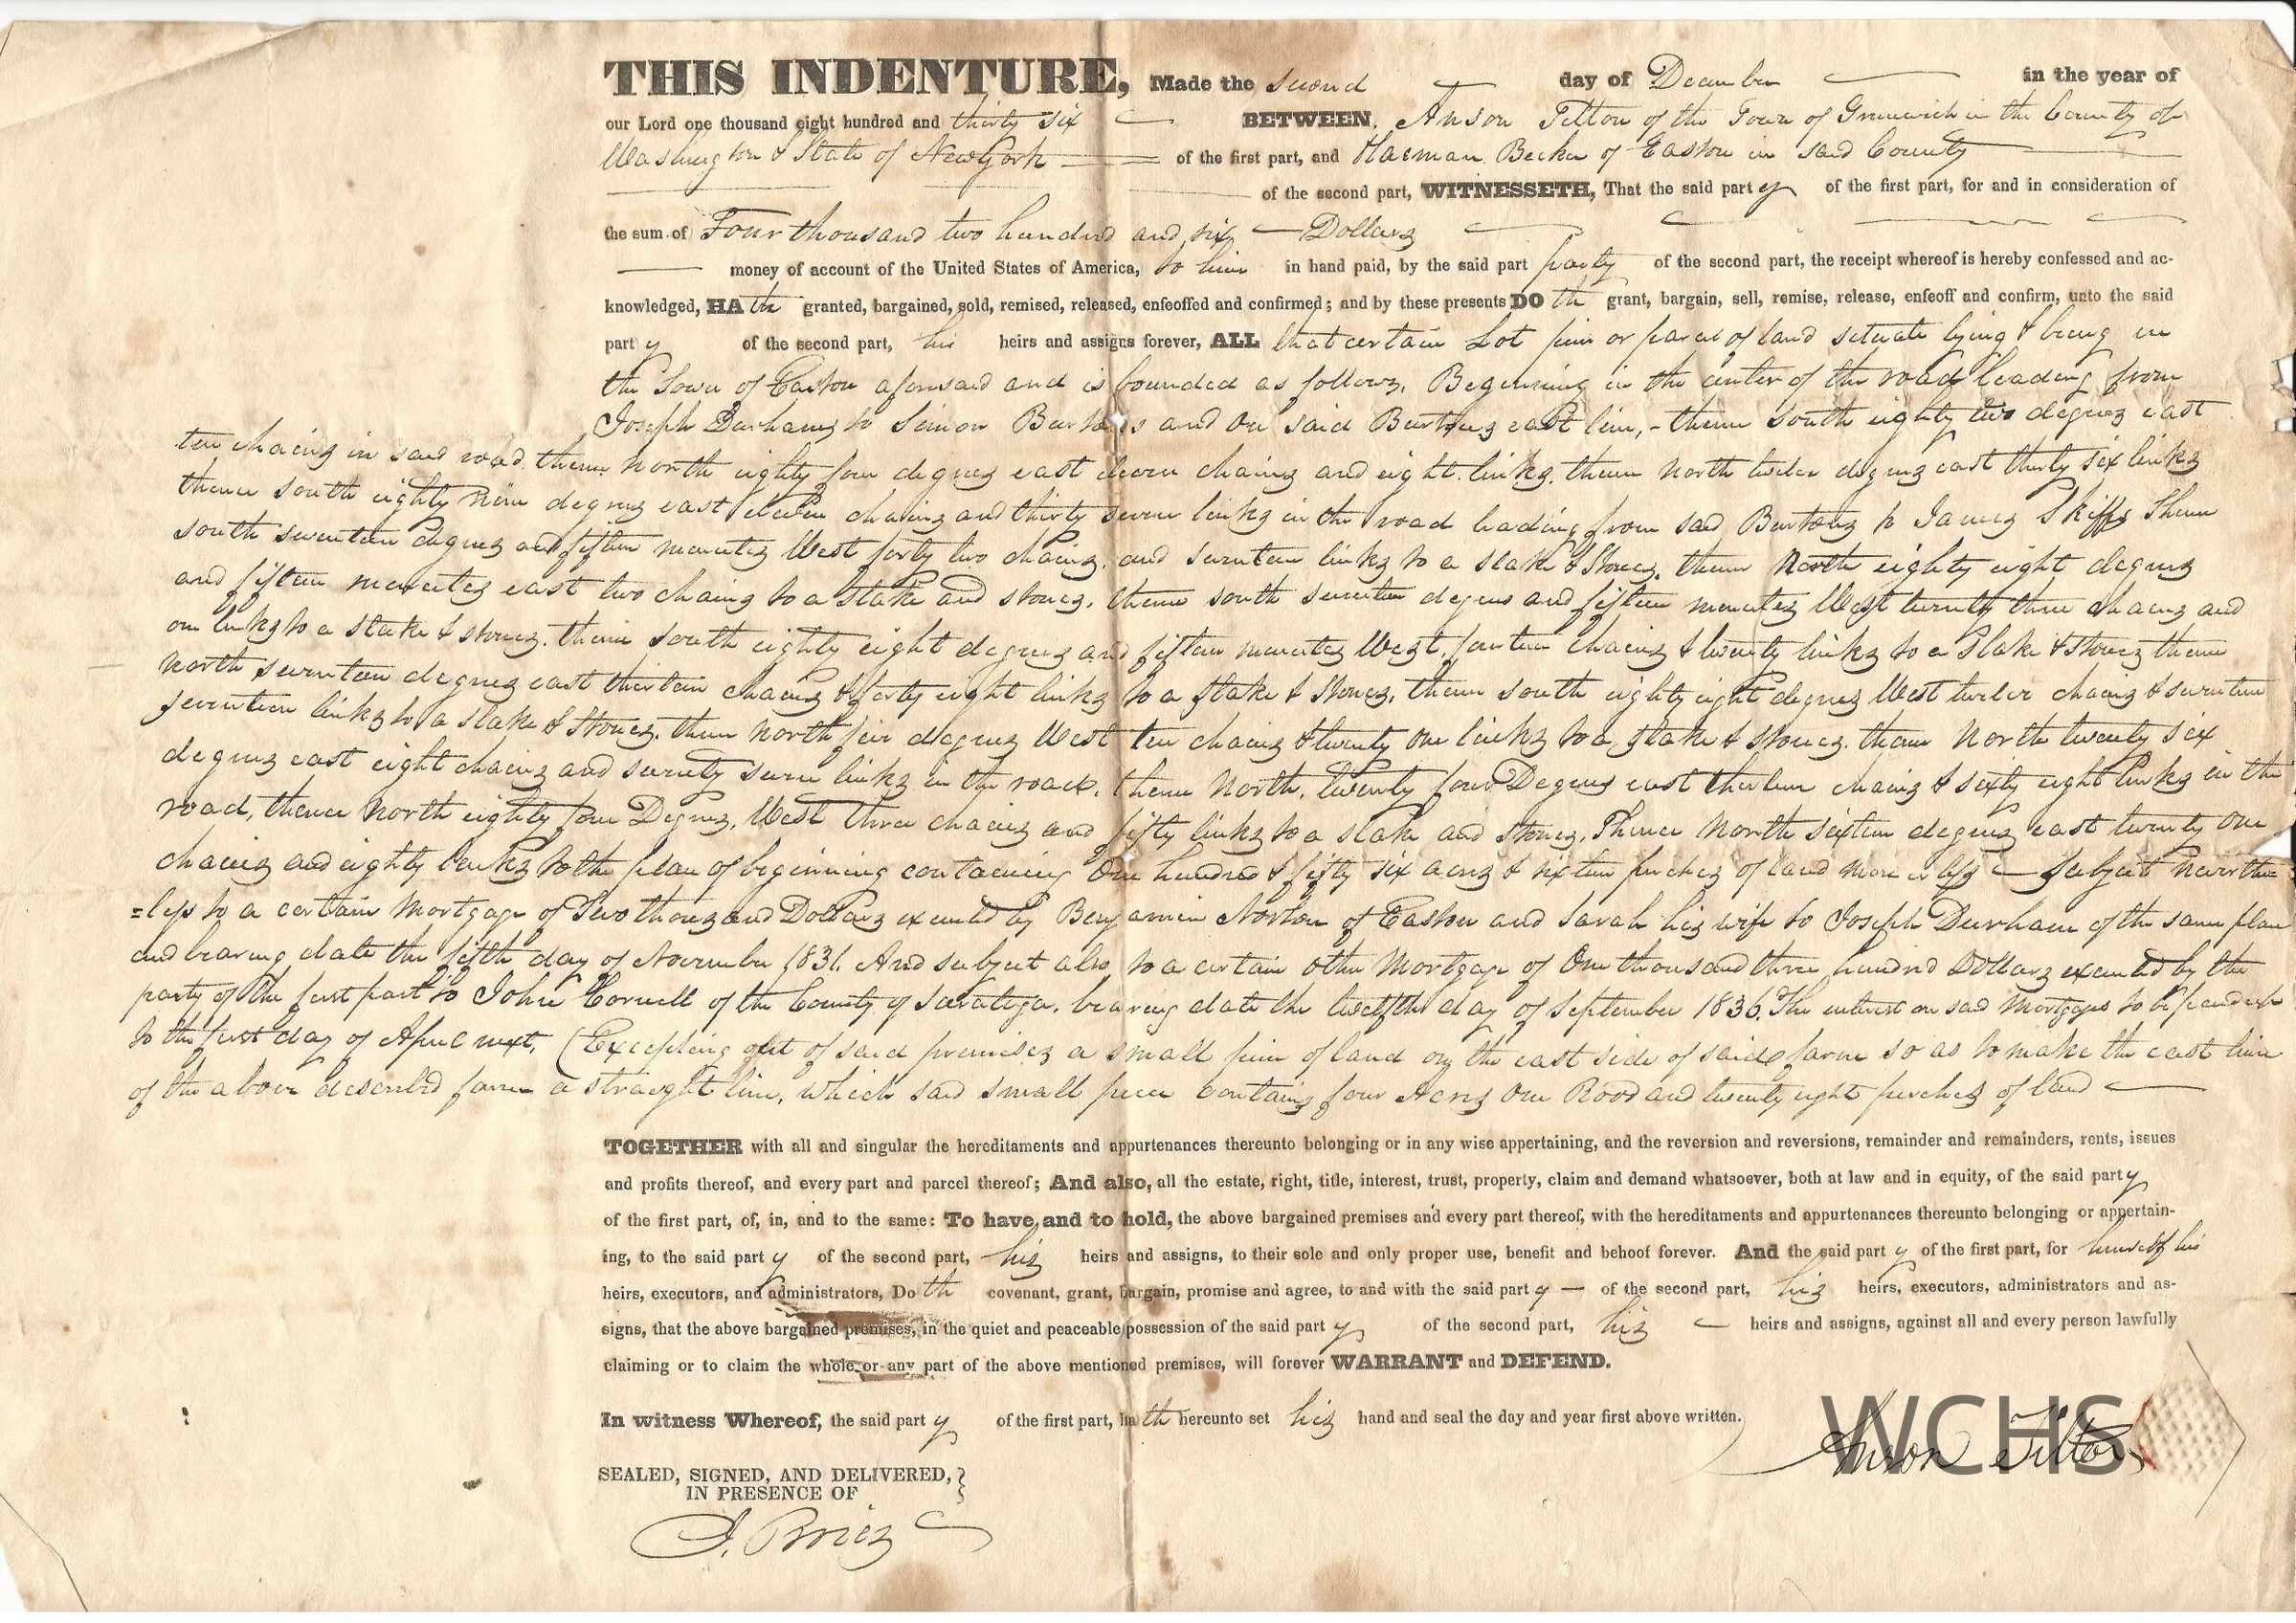 THIS INDENTURE, Made the second day of December in the year of
our Lord one thousand eight hundred and thirty six BETWEEN, Anson Tilton of the Town of Greenwich in the County of
Washington & State of New York of the first part, and Harman Becker of Easton in said County
of the second part, WITNESSETH, That the said party of the first part, for and in consideration of
the sum of Four thousand two hundred and six Dollars
money of account of the United States of America, to him in hand paid, by the said part party of the second part, the receipt whereof is hereby confessed and ac-
knowledged, HAth granted, bargained, sold, remised, released, enfeoffed and confirmed; and by these presents DOth grant, bargain, sell, remise, release, enfeoff and confirm, unto the said
party of the second part, his heirs and assigns forever, ALL that certain Lot piece or parcel of land situate lying & being in
the Town of Easton aforesaid and is bounded as follows, Beginning in the center of the road leading from
Joseph Durhams to Simon Burtons and on said Burtons east line, - thence south eighty two degrees east
ten chains in said road thence North eighty four degrees east eleven chains and eight links, thence North twelve degrees east thirty six links
thence south eighty nine degrees east eleven chains and thirty seven links in the road leading from said Burtons to James Skiffs Thence
south seventeen degrees and fifteen minutes West forty two chains, and seventeen links to a stake & stones, thence North eighty eight degrees
and fifteen minutes east two chains to a stake and stones, thence south seventeen degrees and fifteen minutes West twenty three chains and
one links to a stake & stones, thence south eighty eight degrees and fifteen minutes West, fourteen chains & twenty links to a Stake & stones thence
North seventeen degrees east thirteen chains & forty eight links to a stake & stones, thence south eighty eight degrees West twelve chains & seventeen
seventeen links to a stake & stones, thence North five degrees West ten chains & twenty one links to a stake & stones, thence North twenty six
degrees east eight chains and seventy seven links in the road, thence North, twenty four Degrees east thirteen chains & sixty eight links in the
road, thence North eighty four Degrees, West three chains and fifty links to a stake and stones, Thence North sixteen degrees east twenty one
chains and eighty links to the place of beginning containing One hundred & fifty six acres & sixteen perches of land more or less Subject Neverthe=
=less to a certain Mortgage of Two thousand Dollars executed by Benjamin Norton of Easton and Sarah his wife to Joseph Durham of the same place
and bearing date the fifth day of November 1831. And subject also to a certain other Mortgage of One thousand three hundred Dollars executed by the
party of the first part to John Cornell of the County of Saratoga, bearing date the twelfth day of September 1836. The interest on said Mortgages to be paid up
to the first day of April next, (Excepting out of said premises a small piece of land on the east side of said farm so as to make the east line
of the above described farm a straight line, which said small piece contains four Acres One Rood and twenty eight perches of land
TOGETHER with all and singular the hereditaments and appurtenances thereunto belonging or in any wise appertaining, and the reversion and reversions, remainder and remainders, rents, issues
and profits thereof, and every part and parcel thereof; And also, all the estate, right, title, interest, trust, property, claim and demand whatsoever, both at law and in equity, of the said party
of the first part, of, in, and to the same: To have and to hold, the above bargained premises and every part thereof, with the hereditaments and appurtenances thereunto belonging or appertain-
ing, to the said party of the second part, his heirs and assigns, to their sole and only proper use, benefit and behoof forever. And the said party of the first part, for himself his
heirs, executors, and administrators, Doth covenant, grant, bargain, promise and agree, to and with the said party of the second part, his heirs, executors, administrators and as-
signs, that the above bargained premises, in the quiet and peaceable possession of the said party of the second part, his heirs and assigns, against all and every person lawfully
claiming or to claim the whole or any part of the above mentioned premises, will forever WARRANT and DEFEND.
In witness Whereof, the said party of the first part, hath hereunto set his hand and seal the day and year first above written.
WCHS
Anson Tilton
SEALED, SIGNED, AND DELIVERED,
IN PRESENCE OF